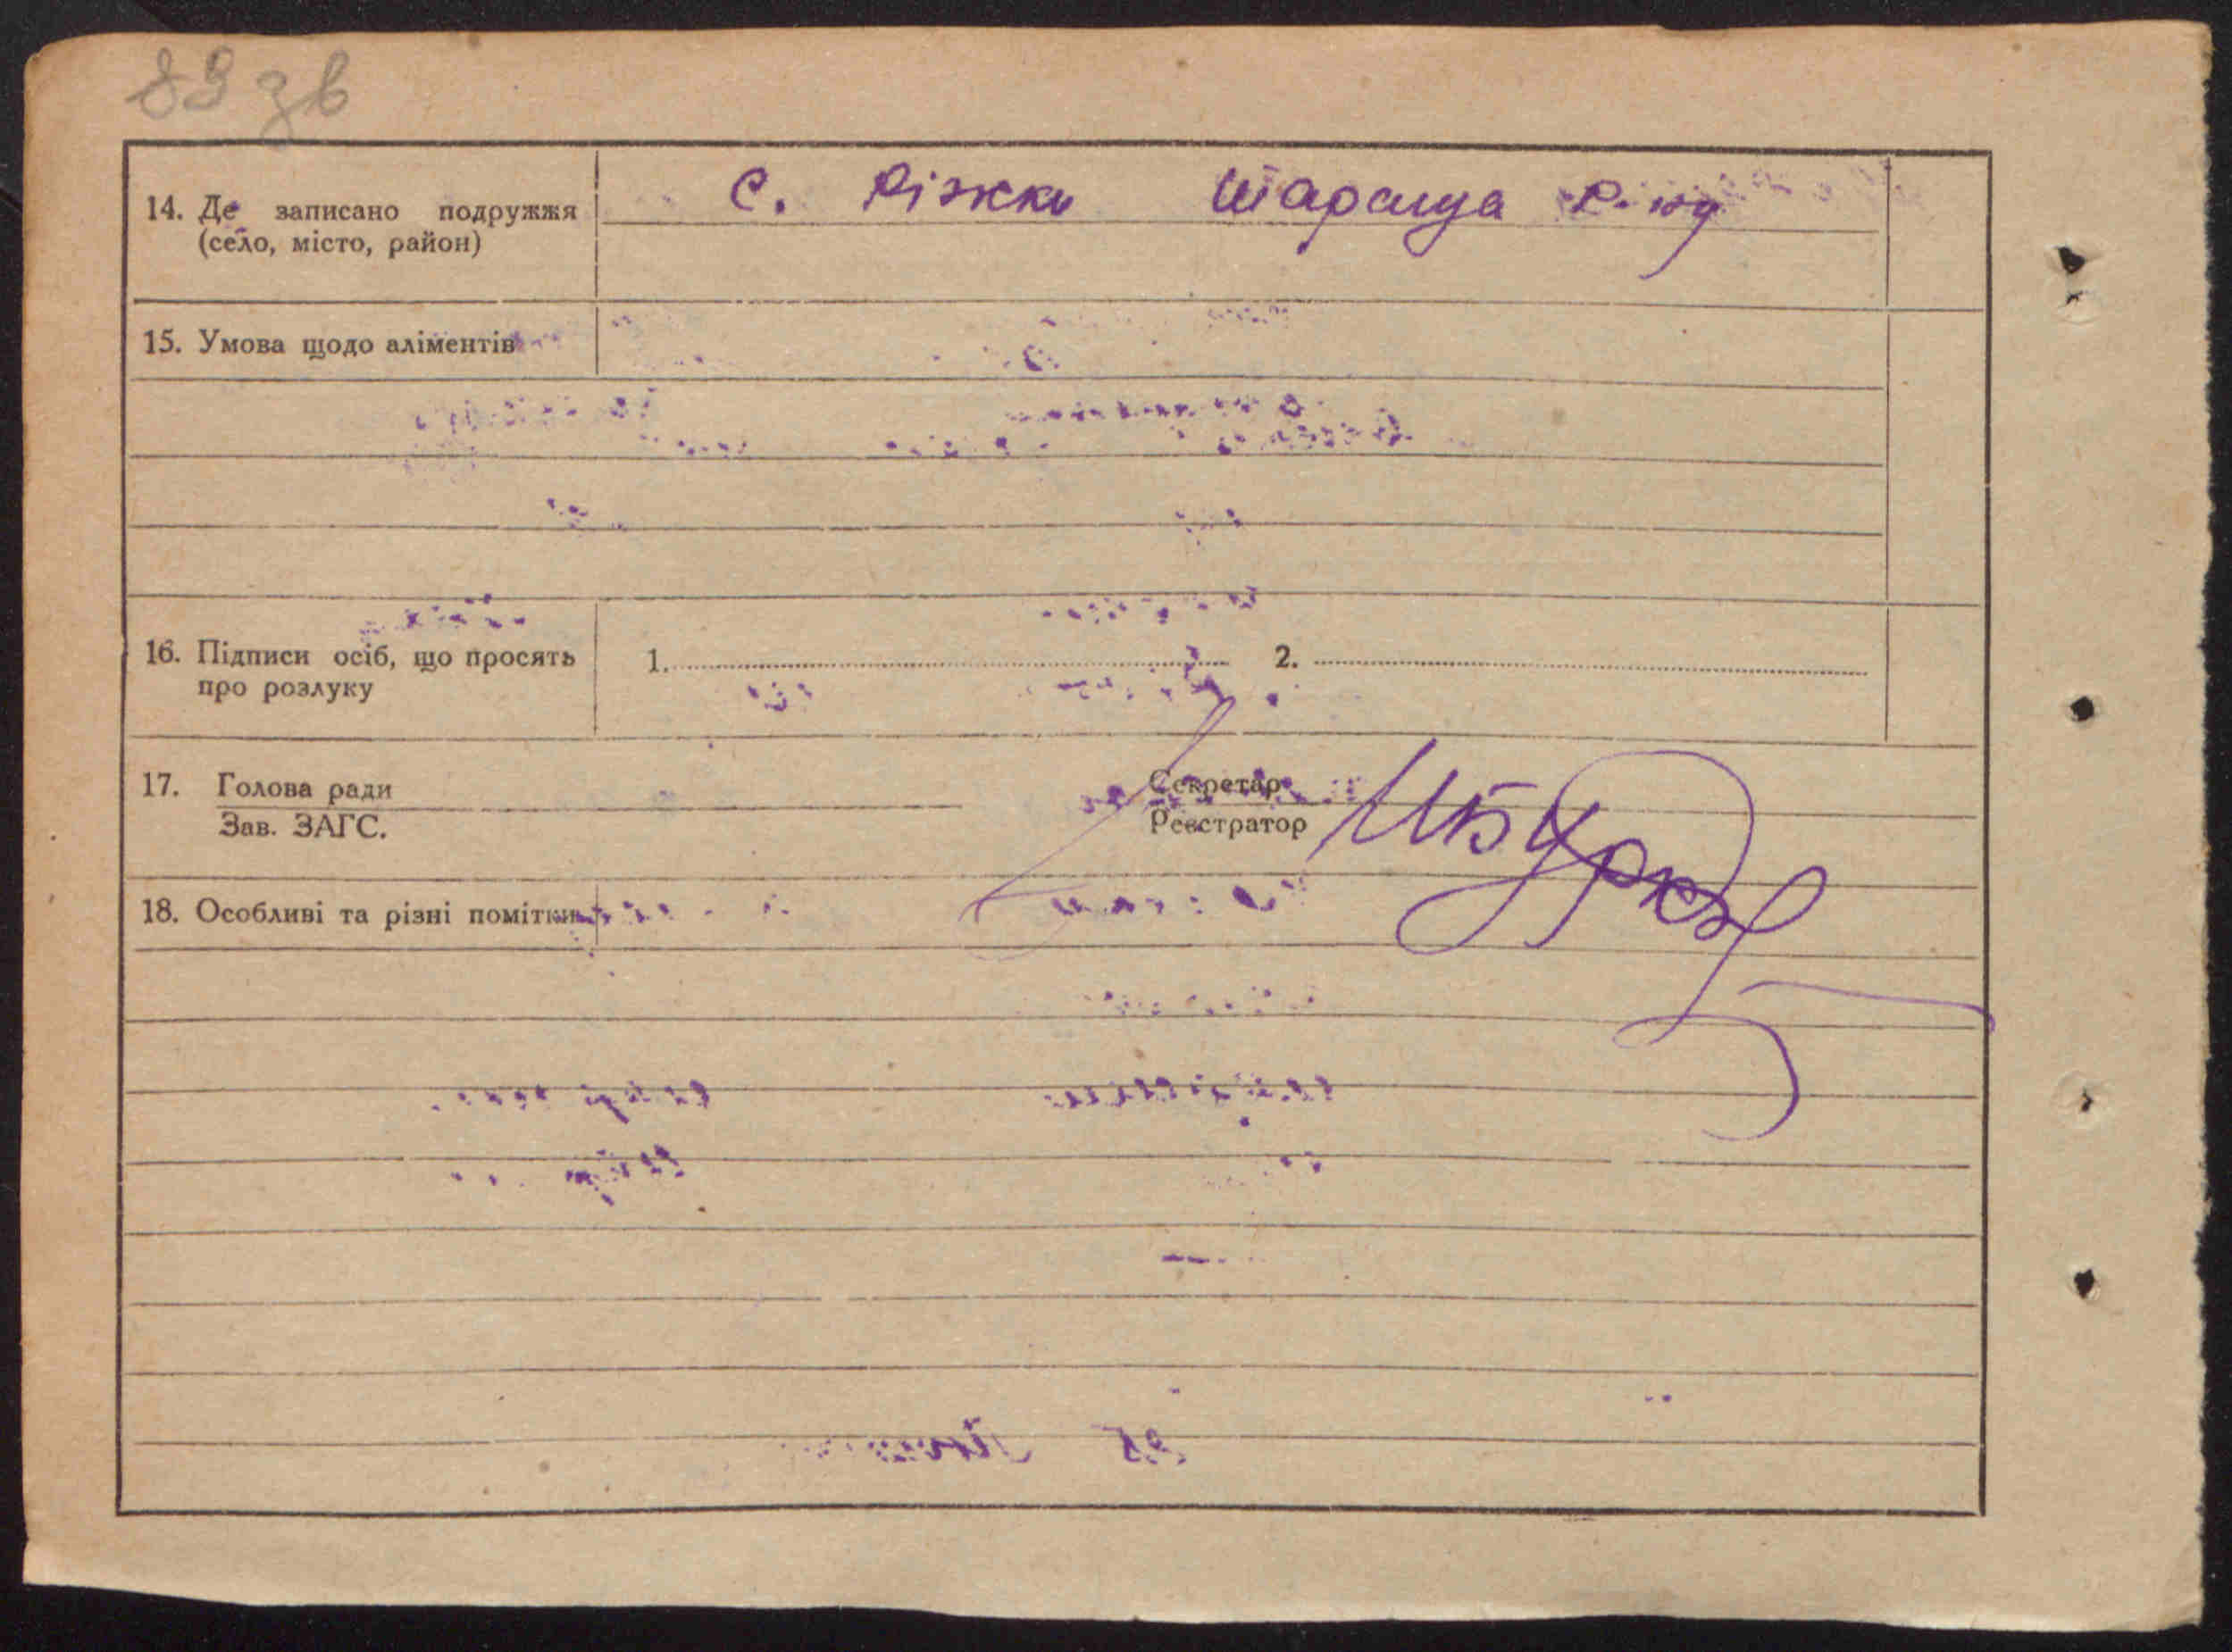 89 зв
14. Де записано подружжя
(село, місто, район)
с. Ріжки Таращ р-ну
15. Умова щодо аліментів
16. Підписи осіб, що просять
про розлуку
1. 2.
17. Голова ради
Зав. ЗАГС.
Секретар
Реєстратор
18. Особливі та різні помітки